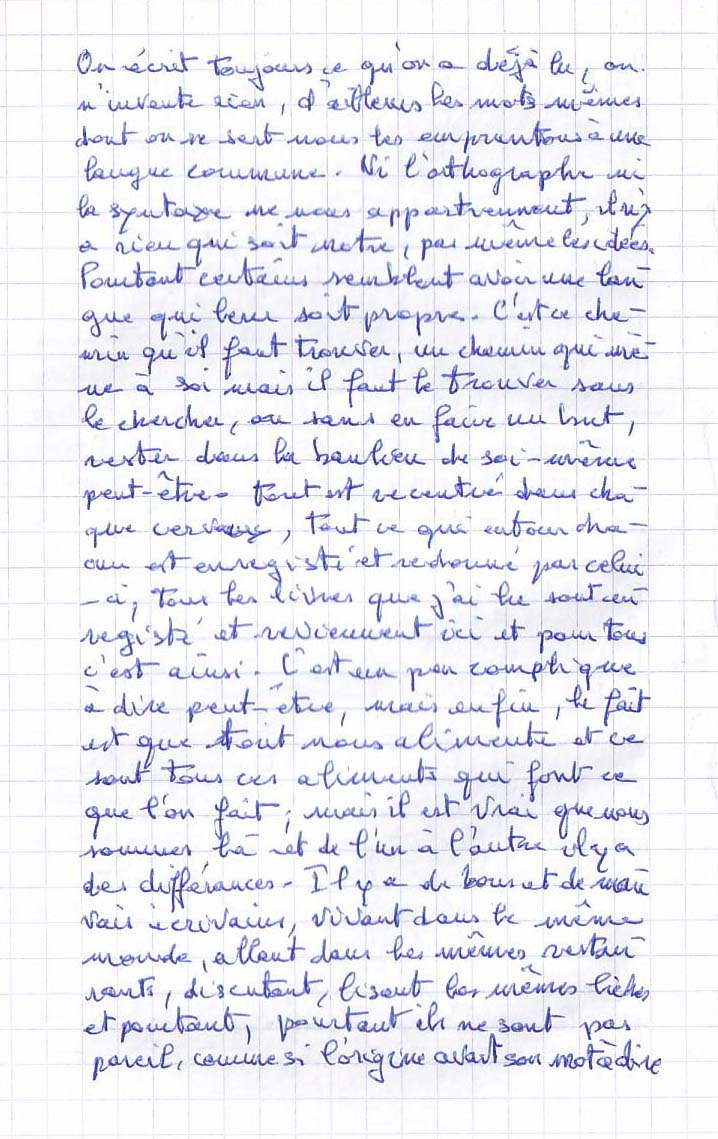 On écrit toujours ce qu'on a déjà lu, on
n'invente rien, d'ailleurs les mots mêmes
dont on se sert nous les empruntons à une
langue commune. Ni l'orthographe ni
la syntaxe ne nous appartiennent, il n'y
a rien qui soit notre, pas même les idées.
Pourtant certains semblent avoir une lan-
gue qui leur soit propre. C'est ce che-
min qu'il faut trouver, un chemin qui mè-
ne à soi mais il faut le trouver sans
le chercher, ou sans en faire un but,
rester dans la banlieu de soi-même
peut-être. Tout est recentré dans cha-
que cerveau, tout ce qui entour cha-
cun est enregistré et redonné par celui
-ci, tous les livres que j'ai lu sont en
registré et reviennent ici et pour tous
c'est ainsi. C'est un peu complique
à dire peut-être, mais enfin, le fait
est que tout nous alimente et ce
sont tous ces aliments qui font ce
que l'on fait ; mais il est vrai que nous
sommes là et de l'un à l'autre il y a
des différances. Il y a de bons et de mau
vais écrivains, vivant dans le même
monde, allant dans les mêmes restau
rants, discutant, lisant les mêmes
et pourtant, pourtant ils ne sont pas
pareil, comme si l'origine avait son mot à dire